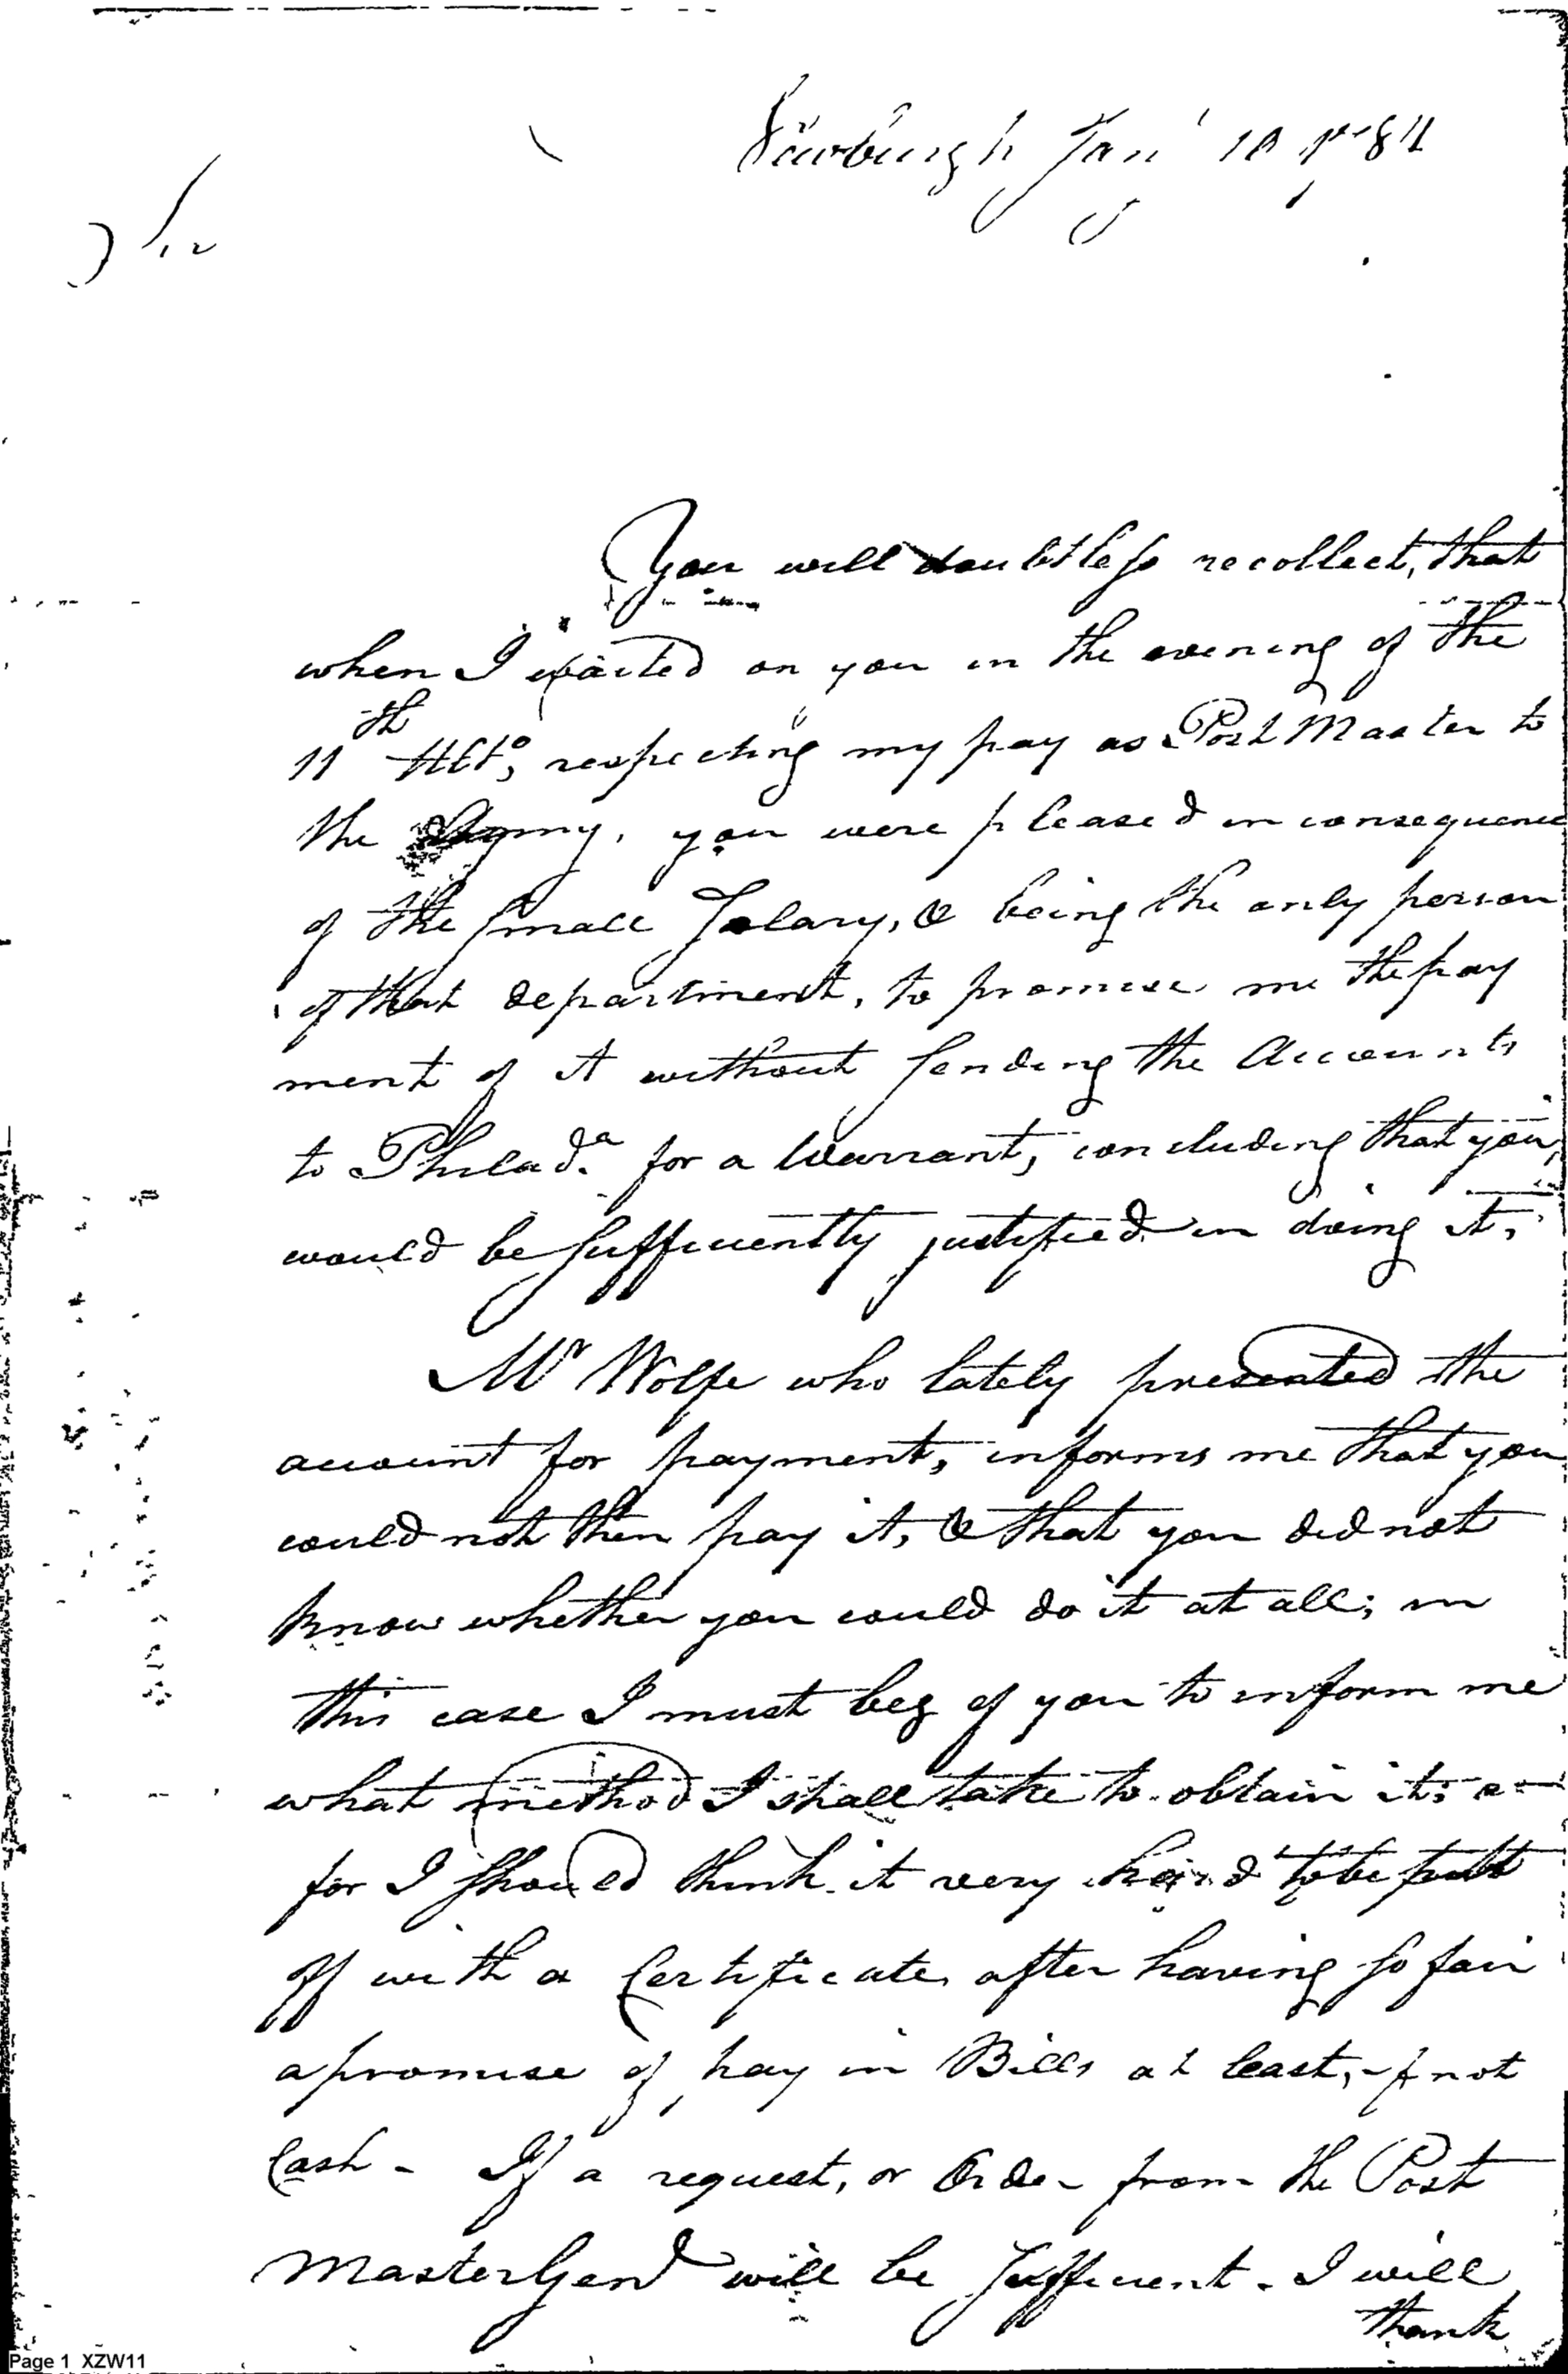 Newburgh Jany 10 1784
Sir
You will doubtless recollect, that
when I waited on you in the evening of the
11th Ulto, respecting my pay as Post Master to
the Army, you were pleased in consequence
of the small Salary, & being the only person
of that department, to promise me the pay
ment of it without sending the Accounts
to Philada. for a Warrant, concluding that you
would be sufficiently justified in doing it,
Mr Wolfe who lately presented the
account for payment, informs me that you
could not then pay it, & that you did not
know whether you could do it at all; in
this case I must beg of you to inform me
what method I shall take to obtain it;
for I should think it very hard to be putt
off with a Certificate after having so fair
a promise of pay in Bills at least, if not
Cash - If a request, or Order from the Post
Master Genl will be sufficient - I will
thank
Page 1 XZW11